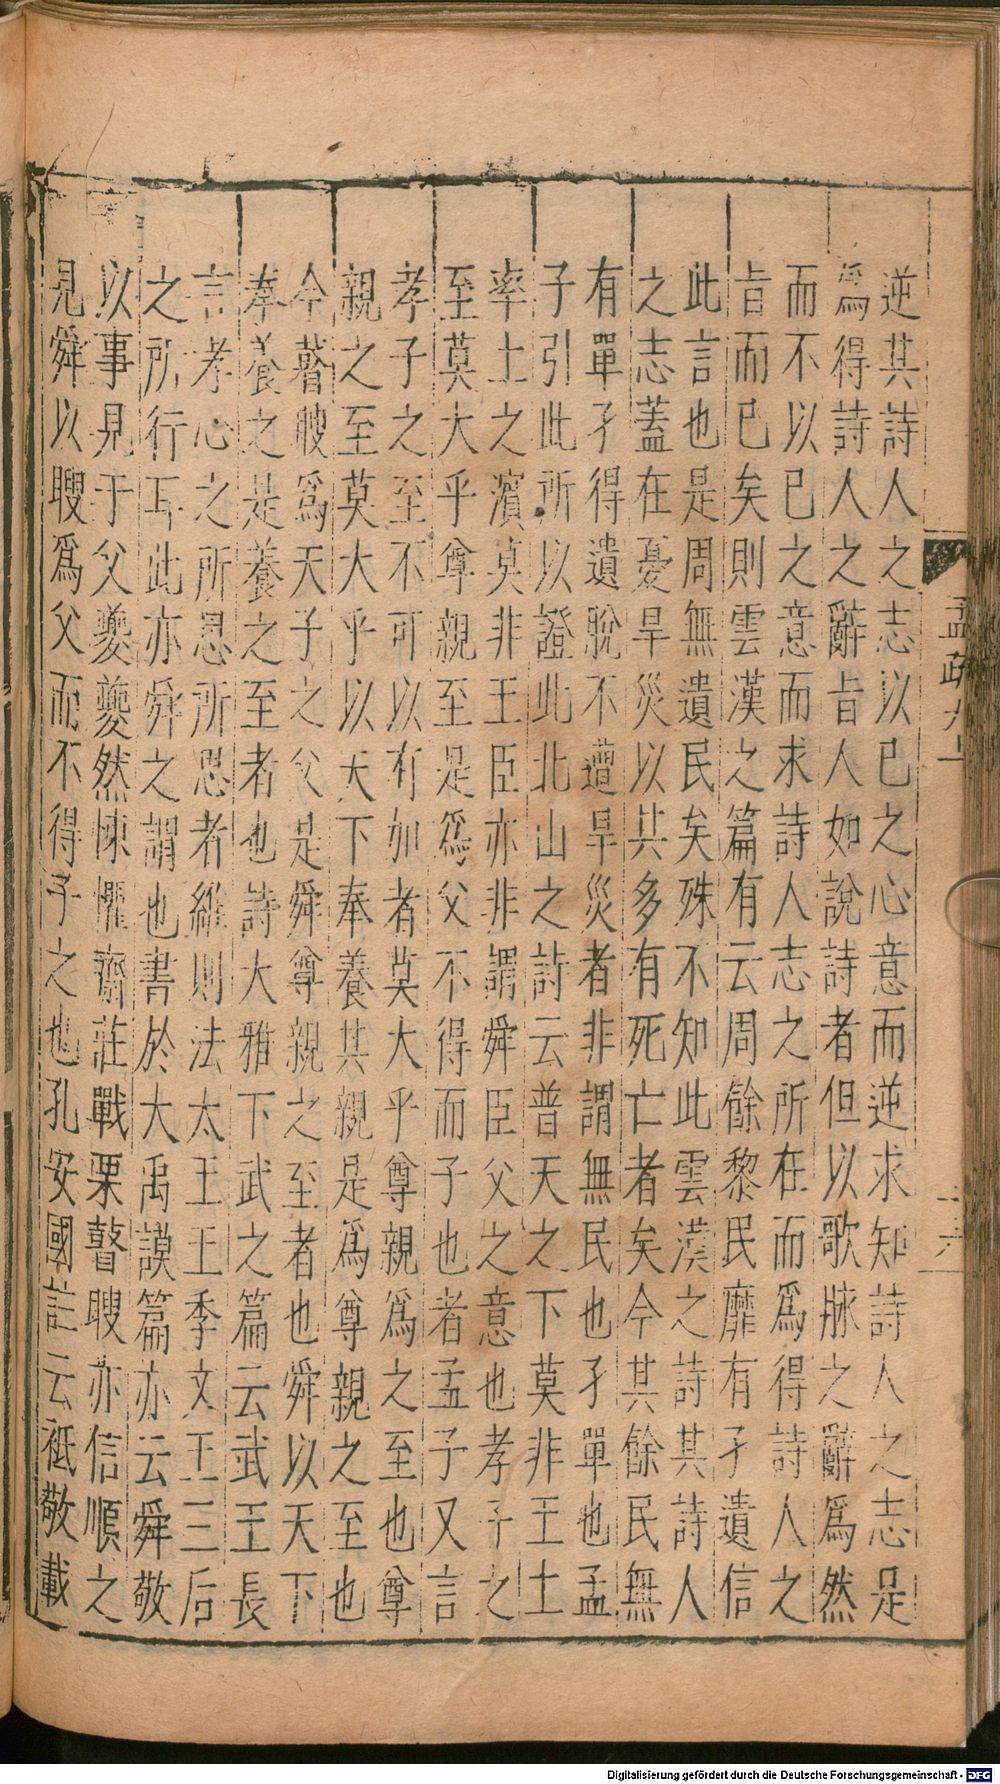 逆其詩人之志以已之心意而逆求知詩人之志是
爲得詩人之辭旨人如說詩者但以歌脉之辭爲然
而不以已之意而求詩人志之所在而爲得詩人之
旨而已矣則雲漢之篇有云周餘黎民靡有孑遺信
此言也是周無遺民矣殊不知此雲漢之詩其詩人
之志蓋在憂旱災以其多有死亡者矣今其餘民無
有單孑得遺脫不遭旱災者非謂無民也孑單也孟
子引此所以證此北山之詩云普天之下莫非王土
率土之濱莫非王臣亦非謂舜臣父之意也孝子之
至莫大乎尊親至是爲父不得而子也者孟子又言
孝子之至不可以有加者莫大乎尊親爲之至也尊
親之至莫大乎以天下奉養其親是爲尊親之至也
今瞽瞍爲天子之父是舜尊親之至者也舜以天下
奉養之是養之至者也詩大雅下武之篇云武王長
言孝心之所思所思者維則法太王王季文王三后
之所行耳此亦舜之謂也書於大禹謨篇亦云舜敬
以事見于父夔夔然悚懼齊莊戰栗瞽瞍亦信順之
見舜以瞍爲父而不得子之也孔安國註云祗敬載
孟疏九上
十六
Digitalisierung gefördert durch die Deutsche Forschungsgemeinschaft - DFG